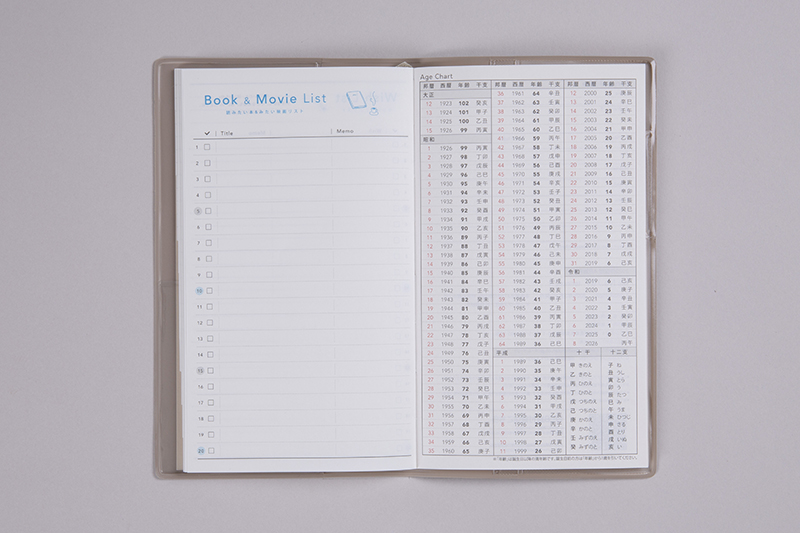 Book & Movie List
読みたい本&みたい映画リスト
✓ Title Memo
1
2
3
4
5
6
7
8
9
10
11
12
13
14
15
16
17
18
19
20
Age Chart
邦暦 西暦 年齢 干支
大正
12 1923 102 癸亥
13 1924 101 甲子
14 1925 100 乙丑
15 1926 99 丙寅
昭和
1 1926 99 丙寅
2 1927 98 丁卯
3 1928 97 戊辰
4 1929 96 己巳
5 1930 95 庚午
6 1931 94 辛未
7 1932 93 壬申
8 1933 92 癸酉
9 1934 91 甲戌
10 1935 90 乙亥
11 1936 89 丙子
12 1937 88 丁丑
13 1938 87 戊寅
14 1939 86 己卯
15 1940 85 庚辰
16 1941 84 辛巳
17 1942 83 壬午
18 1943 82 癸未
19 1944 81 甲申
20 1945 80 乙酉
21 1946 79 丙戌
22 1947 78 丁亥
23 1948 77 戊子
24 1949 76 己丑
25 1950 75 庚寅
26 1951 74 辛卯
27 1952 73 壬辰
28 1953 72 癸巳
29 1954 71 甲午
30 1955 70 乙未
31 1956 69 丙申
32 1957 68 丁酉
33 1958 67 戊戌
34 1959 66 己亥
35 1960 65 庚子
邦暦 西暦 年齢 干支
36 1961 64 辛丑
37 1962 63 壬寅
38 1963 62 癸卯
39 1964 61 甲辰
40 1965 60 乙巳
41 1966 59 丙午
42 1967 58 丁未
43 1968 57 戊申
44 1969 56 己酉
45 1970 55 庚戌
46 1971 54 辛亥
47 1972 53 壬子
48 1973 52 癸丑
49 1974 51 甲寅
50 1975 50 乙卯
51 1976 49 丙辰
52 1977 48 丁巳
53 1978 47 戊午
54 1979 46 己未
55 1980 45 庚申
56 1981 44 辛酉
57 1982 43 壬戌
58 1983 42 癸亥
59 1984 41 甲子
60 1985 40 乙丑
61 1986 39 丙寅
62 1987 38 丁卯
63 1988 37 戊辰
64 1989 36 己巳
平成
1 1989 36 己巳
2 1990 35 庚午
3 1991 34 辛未
4 1992 33 壬申
5 1993 32 癸酉
6 1994 31 甲戌
7 1995 30 乙亥
8 1996 29 丙子
9 1997 28 丁丑
10 1998 27 戊寅
11 1999 26 己卯
邦暦 西暦 年齢 干支
12 2000 25 庚辰
13 2001 24 辛巳
14 2002 23 壬午
15 2003 22 癸未
16 2004 21 甲申
17 2005 20 乙酉
18 2006 19 丙戌
19 2007 18 丁亥
20 2008 17 戊子
21 2009 16 己丑
22 2010 15 庚寅
23 2011 14 辛卯
24 2012 13 壬辰
25 2013 12 癸巳
26 2014 11 甲午
27 2015 10 乙未
28 2016 9 丙申
29 2017 8 丁酉
30 2018 7 戊戌
31 2019 6 己亥
令和
1 2019 6 己亥
2 2020 5 庚子
3 2021 4 辛丑
4 2022 3 壬寅
5 2023 2 癸卯
6 2024 1 甲辰
7 2025 0 乙巳
8 2026 丙午
十干 十二支
甲 きのえ
乙 きのと
丙 ひのえ
丁 ひのと
戊 つちのえ
己 つちのと
庚 かのえ
辛 かのと
壬 みずのえ
癸 みずのと
子 ね
丑 うし
寅 とら
卯 う
辰 たつ
巳 み
午 うま
未 ひつじ
申 さる
酉 とり
戌 いぬ
亥 い
※「年齢」は誕生日以降の満年齢です。誕生日前の方は「年齢」から1歳を引いてください。